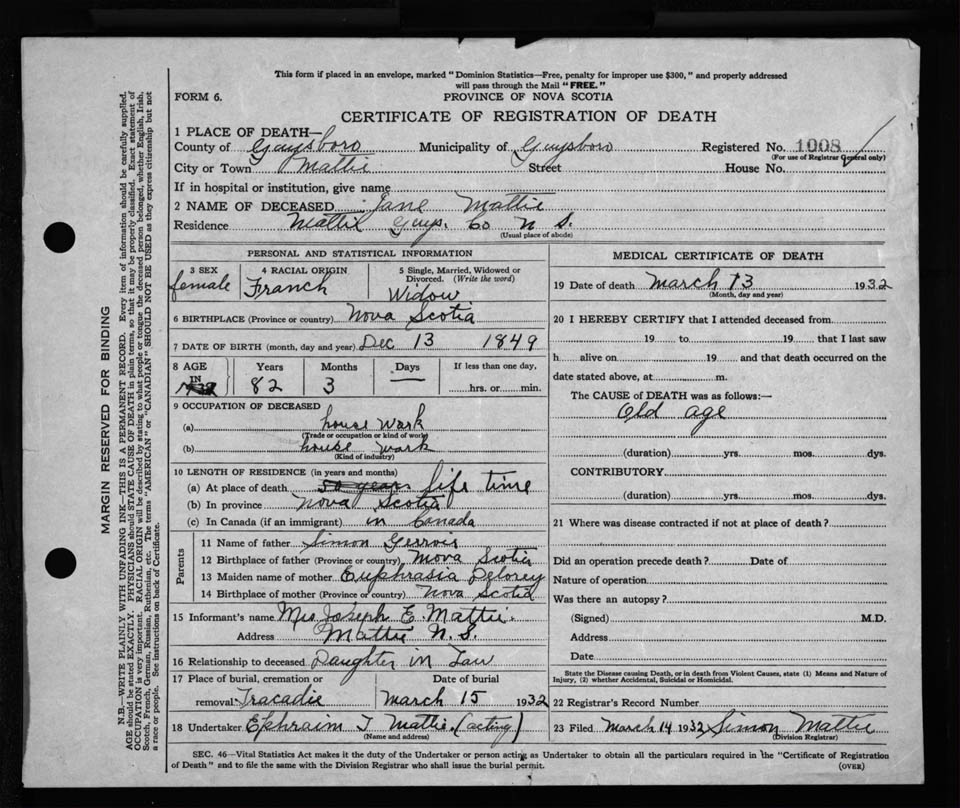 This form if placed in an envelope, marked "Dominion Statistics—Free, penalty for improper use $300," and properly addressed
will pass through the Mail "FREE."
FORM 6.
PROVINCE OF NOVA SCOTIA
CERTIFICATE OF REGISTRATION OF DEATH
1 PLACE OF DEATH—
County of Guysboro Municipality of Guysboro Registered No. 1008
(For use of Registrar General only)
City or Town Mattie Street House No.
If in hospital or institution, give name
2 NAME OF DECEASED Jane Mattie
Residence Mattie Guys. Co N S.
(Usual place of abode)
PERSONAL AND STATISTICAL INFORMATION
3 SEX 4 RACIAL ORIGIN 5 Single, Married, Widowed or
Divorced. (Write the word)
female Franch Widow
6 BIRTHPLACE (Province or country) Nova Scotia
7 DATE OF BIRTH (month, day and year) Dec 13 1849
8 AGE Years Months Days If less than one day,
IN 82 3 — hrs. or min.
9 OCCUPATION OF DECEASED
(a) house wark
(Trade or occupation or kind of work)
(b) house wark
(Kind of industry)
10 LENGTH OF RESIDENCE (in years and months)
(a) At place of death 50 years life time
(b) In province Nova Scotia
(c) In Canada (if an immigrant) in Canada
Parents
11 Name of father Simon Gerrois
12 Birthplace of father (Province or country) Nova Scotia
13 Maiden name of mother Euphrasia Delorey
14 Birthplace of mother (Province or country) Nova Scotia
15 Informant's name Mrs Joseph E. Mattie.
Address Mattie N. S.
16 Relationship to deceased Daughter in Law
17 Place of burial, cremation or Date of burial
removal Tracadie March 15 1932
18 Undertaker Ephraim J Mattie (acting)
(Name and address)
MEDICAL CERTIFICATE OF DEATH
19 Date of death March 13 1932
(Month, day and year)
20 I HEREBY CERTIFY that I attended deceased from
19 to 19 that I last saw
h alive on 19 and that death occurred on the
date stated above, at m.
The CAUSE of DEATH was as follows:—
Old age
(duration) yrs. mos. dys.
CONTRIBUTORY
(duration) yrs. mos. dys.
21 Where was disease contracted if not at place of death?
Did an operation precede death? Date of
Nature of operation
Was there an autopsy?
(Signed) M.D.
Address
Date
State the Disease causing Death, or in death from Violent Causes, state (1) Means and Nature of
Injury, (2) whether Accidental, Suicidal or Homicidal.
22 Registrar's Record Number
23 Filed March 14 1932 Simon Mattie
(Division Registrar)
SEC. 46—Vital Statistics Act makes it the duty of the Undertaker or person acting as Undertaker to obtain all the particulars required in the "Certificate of Registration
of Death" and to file the same with the Division Registrar who shall issue the burial permit.
(OVER)
MARGIN RESERVED FOR BINDING
N.B.—WRITE PLAINLY WITH UNFADING INK—THIS IS A PERMANENT RECORD. Every item of information should be carefully supplied.
AGE should be stated EXACTLY. PHYSICIANS should STATE CAUSE OF DEATH in plain terms, so that it may be properly classified. Exact statement of
OCCUPATION is very important. RACIAL ORIGIN will be described by stating to what people or tongue the deceased person belonged, whether English, Irish,
Scotch, French, German, Russian, Ruthenian, etc. The terms "AMERICAN" or "CANADIAN" SHOULD NOT BE USED as they express citizenship but not
a race or people. See instructions on back of Certificate.